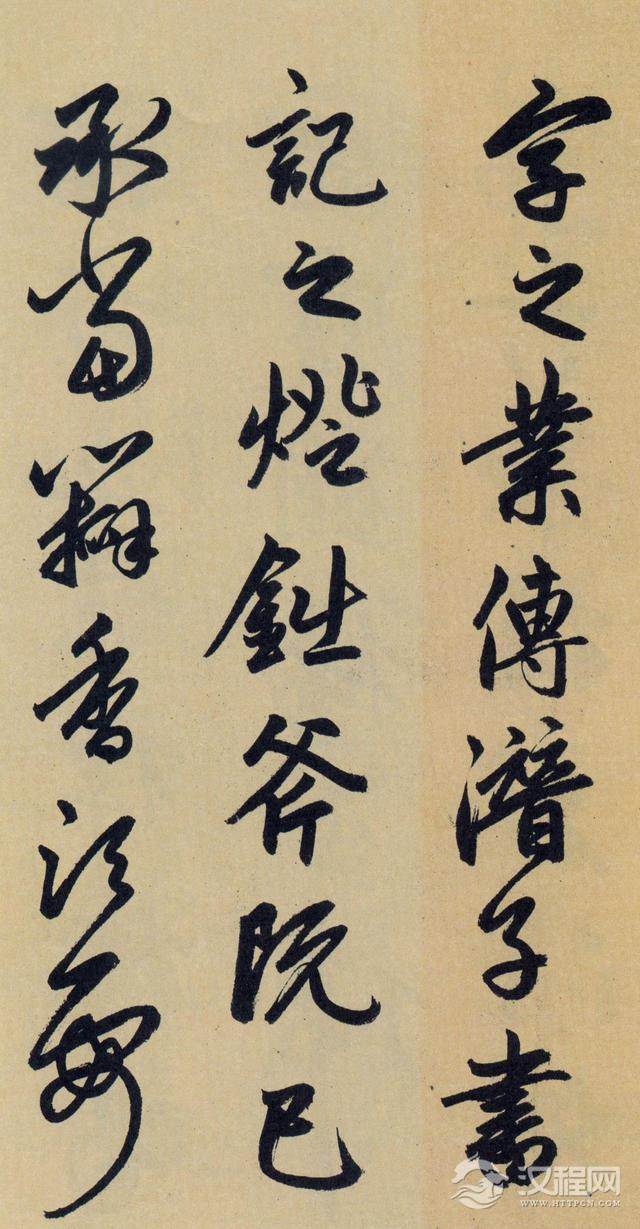 字之業傳潛子書
記之燈鉗斧既已
承當瓣香須要
汉程网
HTTPCN.COM